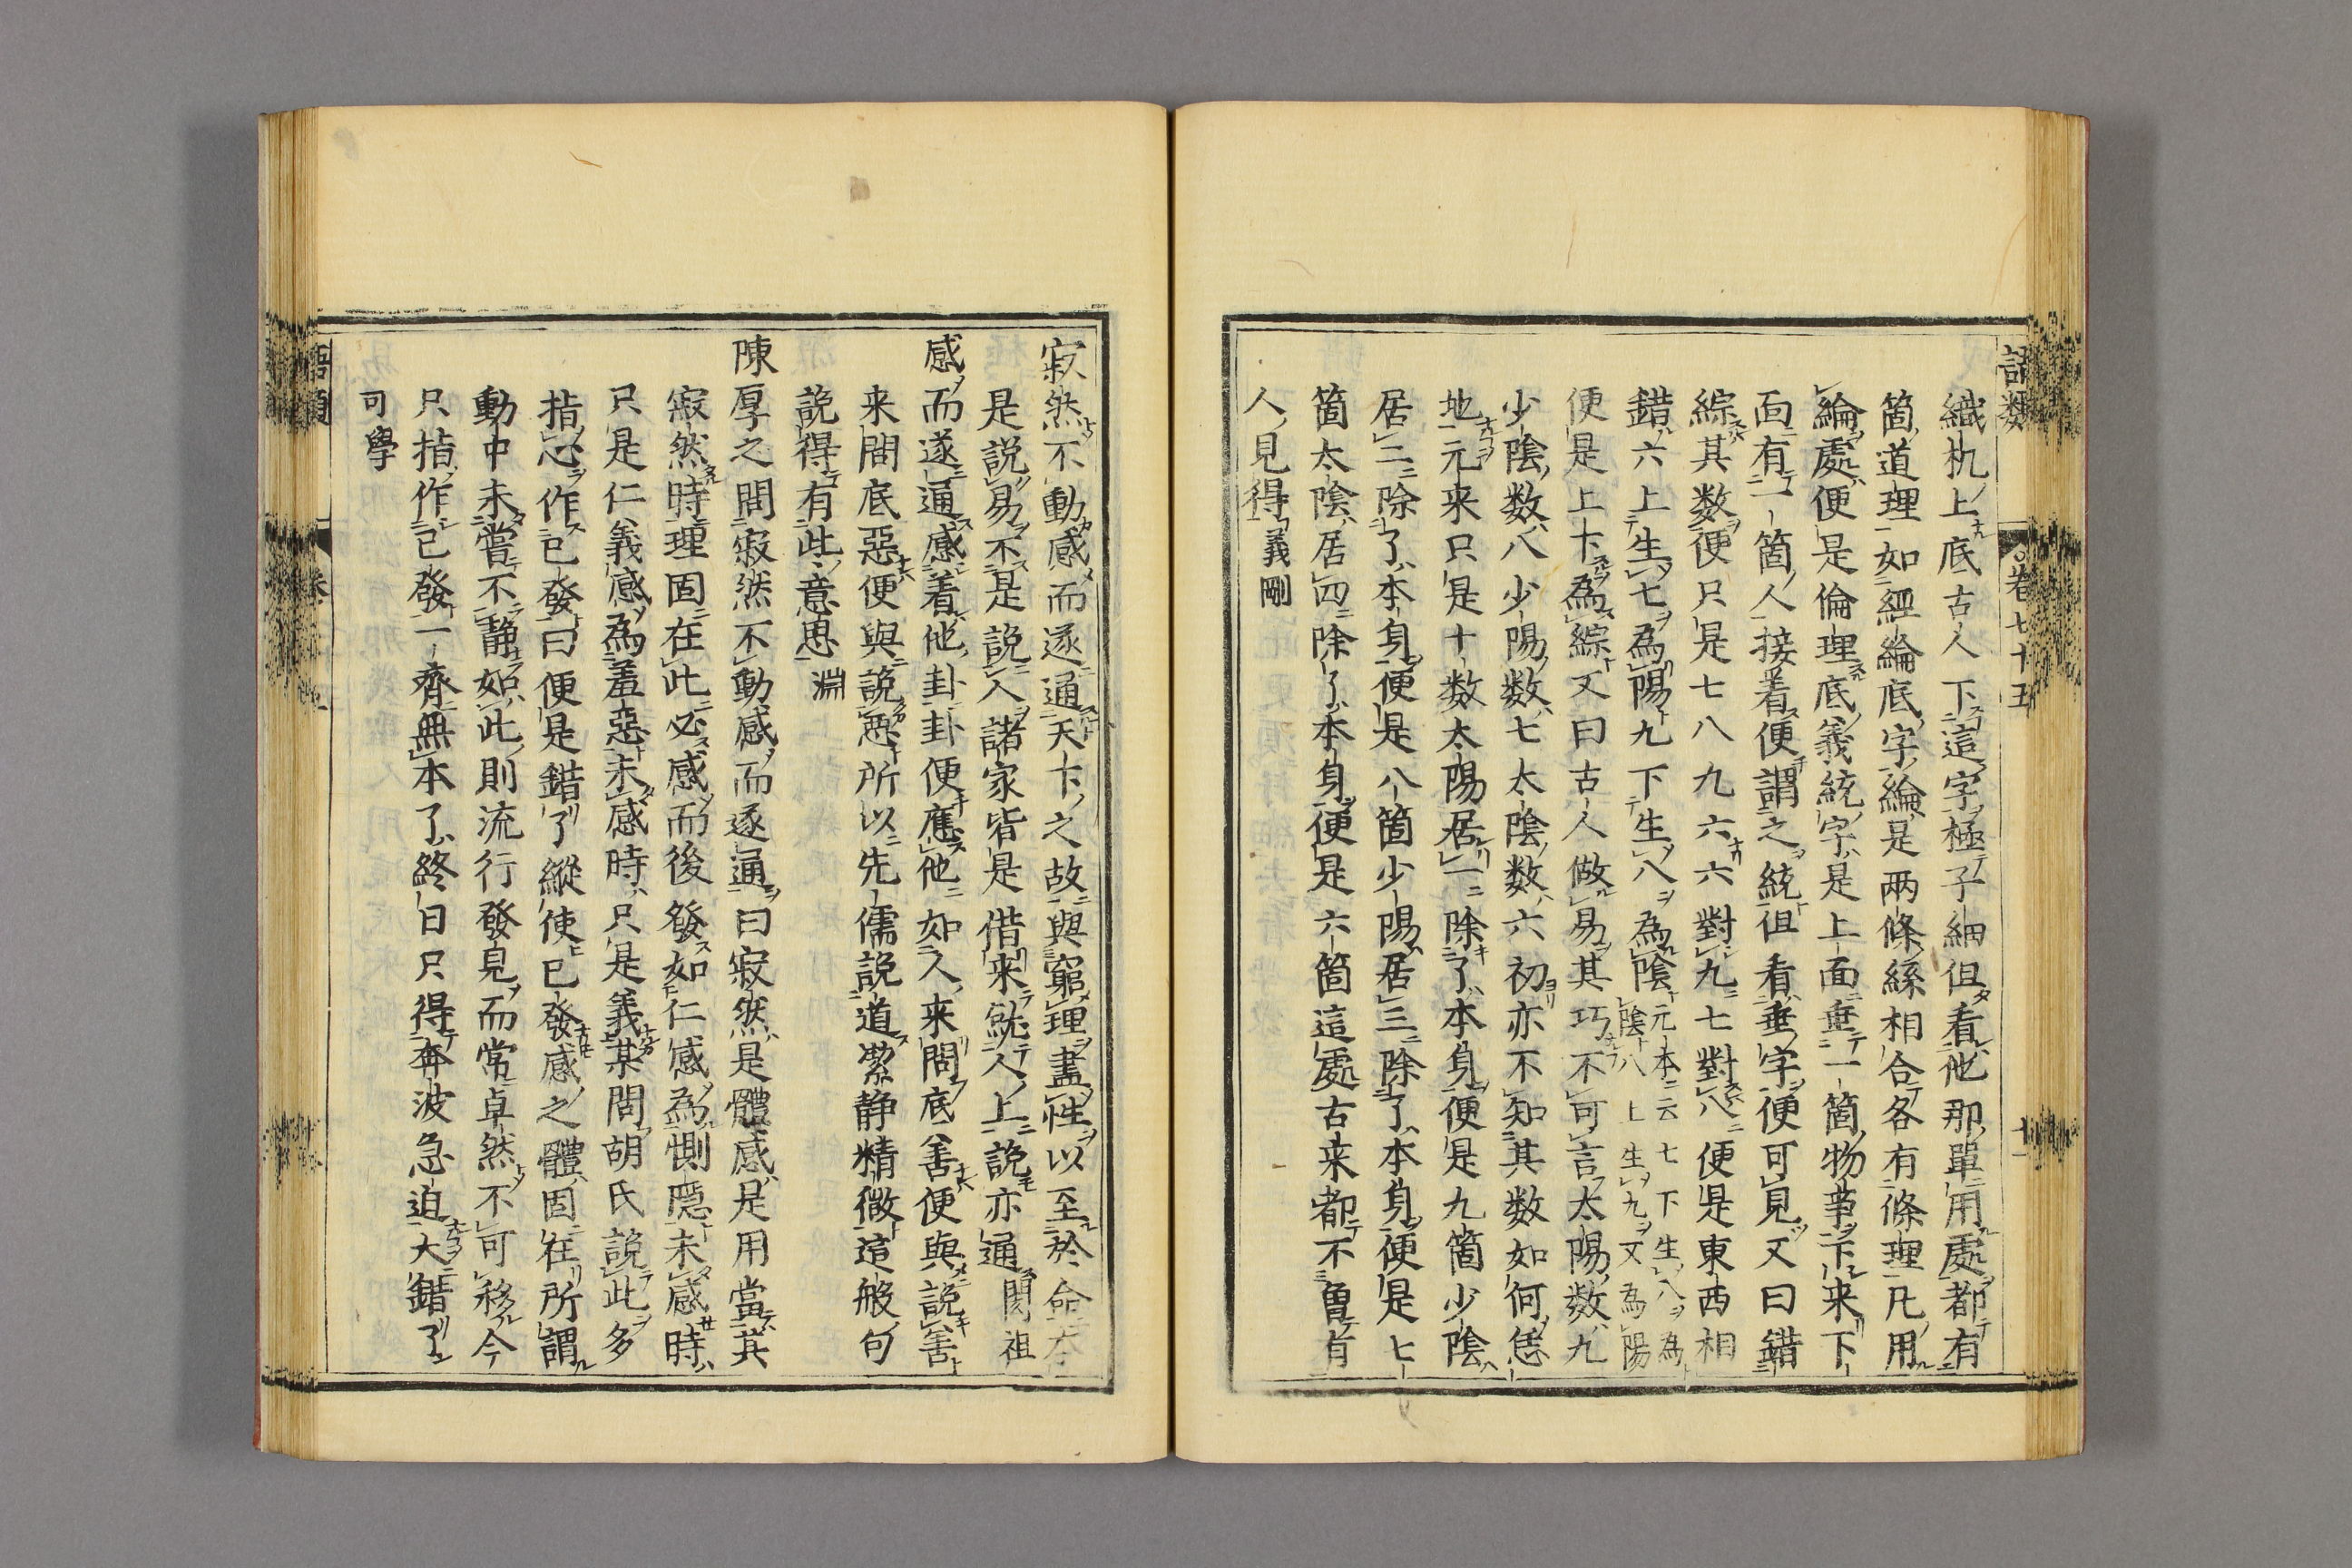 語類 卷七十五 十一
織机上底古人下這字極子細但看他那單用處都有
箇道理如經綸底字綸是兩條絲相合各有條理凡用
綸處便是倫理底義統字是上面垂一箇物事下来下
面有一箇人接着便謂之統但看垂字便可見又曰錯
綜其数便只是七八九六六對九七對八便是東西相
錯六上生七為陽九下生八為陰元本云七下生八為陰八上生九又為陽
便是上下為綜又曰古人做易其巧不可言太陽数九
少陰数八少陽数七太陰数六初亦不知其数如何恁
地元来只是十数太陽居一除了本身便是九箇少陰
居二除了本身便是八箇少陽居三除了本身便是七
箇太陰居四除了本身便是六箇這處古来都不曾有
人見得義剛
寂然不動感而遂通天下之故與窮理盡性以至於命本
是說易不是說人諸家皆是借来就人上說亦通閎祖
感而遂通感着他卦卦便應他如人来問底善便與說善
来問底惡便與說惡所以先儒說道潔静精微這般句
說得有此意思淵
陳厚之問寂然不動感而遂通曰寂然是體感是用當其
寂然時理固在此必感而後發如仁感為惻隠未感時
只是仁義感為羞惡未感時只是義某問胡氏說此多
指心作已發曰便是錯了縱使已發感之體固在所謂
動中未嘗不静如此則流行發見而常卓然不可移今
只指作已發一齊無本了終日只得奔波急迫大錯了
可學
語類